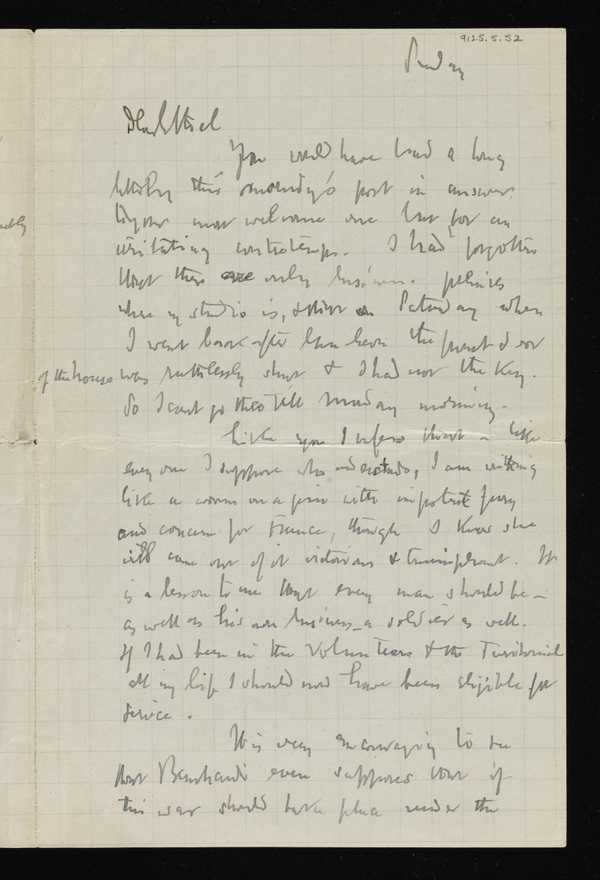 9125.5.52
Sunday
Dear Ethel
You would have had a long
letter by this morning's post in answer
to your most welcome one but for an
irritating contretemps. I had forgotten
that there are only business premises
where my studio is, & that on Saturday when
I went back after luncheon the front door
of the house was ruthlessly shut & I had not the key.
So I can't go there till Monday morning.
Like you I
every one I suppose who understands, I am writhing
like a worm on a pin with impotent fury
and concern for France, though I know she
will come out of it victorious & triumphant. It
is a lesson to me that every man should be –
as well as his own business – a soldier as well.
If I had been in the Volunteers & the Territorial
all my life I should now have been eligible for
service.
It is very encouraging to see
that Bernhardi even supposes that if
this war should take place under the